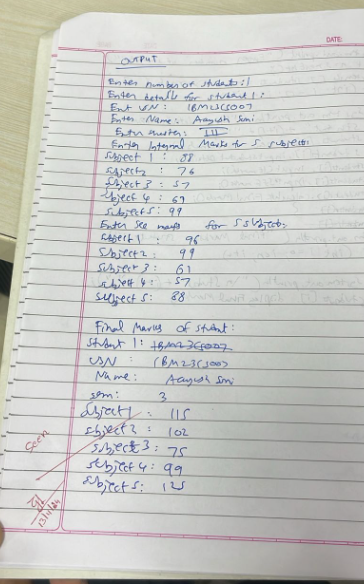 DATE:
OUTPUT
Enter number of students: 1
Enter details for student 1:
Ent USN: 1BM23CS007
Enter Name: Aayush Soni
Enter semester: III
Enter Internal Marks for 5 subjects
Subject 1: 88
Subject2: 76
Subject 3: 57
Subject 4: 69
Subject 5: 99
Enter See marks for 5 subjects
Subject 1 96
Subject 2: 99
Subject 3: 61
subject 4: 57
subject 5: 88
Final Marks of student:
Student 1:
USN: 1BM23CS007
Name: Aayush Soni
sem: 3
Subject 1: 115
subject 2: 102
subject 3: 75
subject 4: 99
Subject 5: 125
Seen